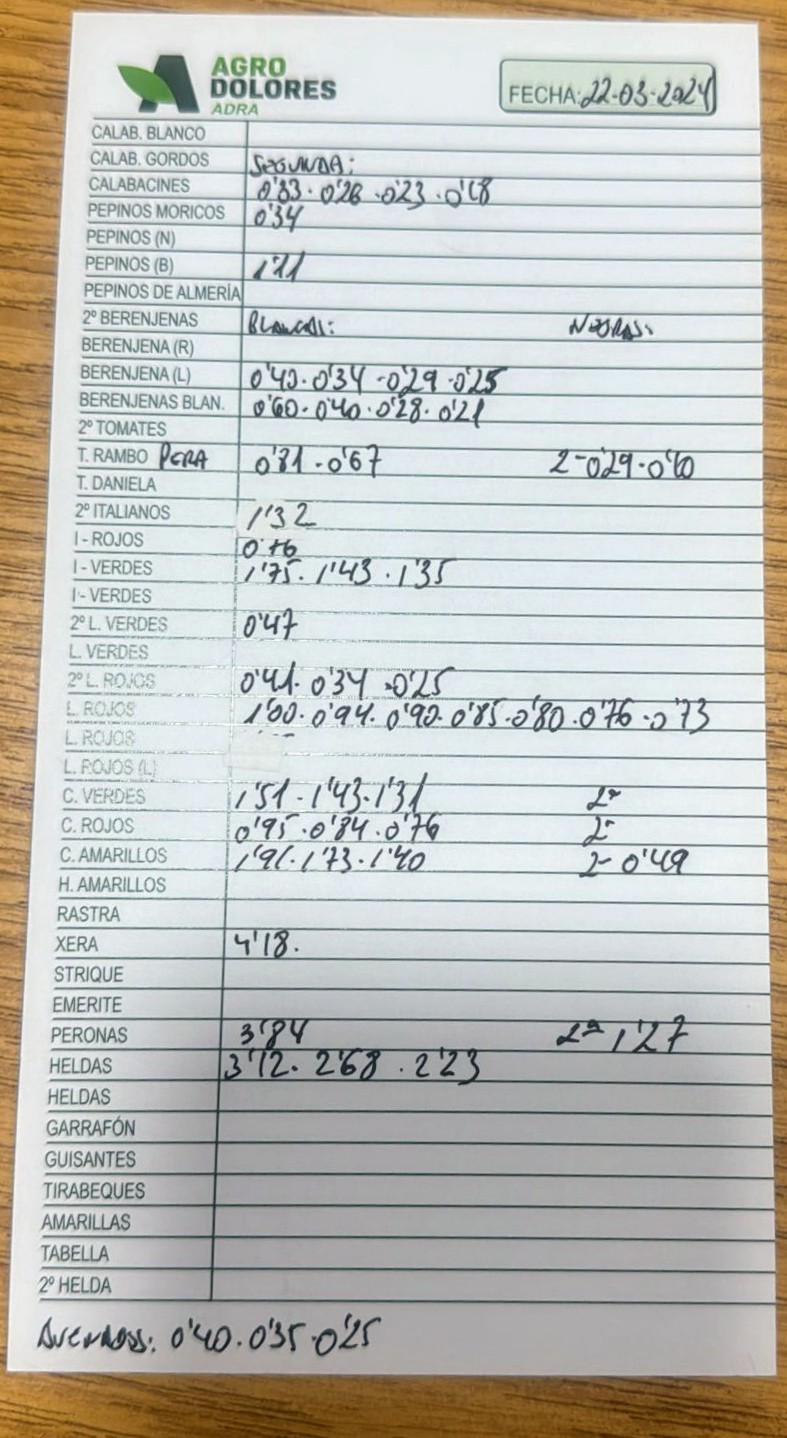 AGRO
DOLORES
ADRA
FECHA: 22-03-2024
CALAB. BLANCO
CALAB. GORDOS SEGUNDA:
CALABACINES 0'33 · 0'26 · 0'23 · 0'18
PEPINOS MORICOS 0'34
PEPINOS (N)
PEPINOS (B) 1'11
PEPINOS DE ALMERÍA
2º BERENJENAS BLANCAS: NEGRAS:
BERENJENA (R)
BERENJENA (L) 0'40 · 0'34 · 0'29 · 0'25
BERENJENAS BLAN. 0'60 · 0'40 · 0'28 · 0'21
2º TOMATES
T. RAMBO PERA 0'81 · 0'67 2- 0'29 · 0'10
T. DANIELA
2º ITALIANOS 1'32
I - ROJOS 0'76
I - VERDES 1'75 · 1'43 · 1'35
I - VERDES
2º L. VERDES 0'47
L. VERDES
2º L. ROJOS 0'41 · 0'34 · 0'25
L. ROJOS 1'00 · 0'94 · 0'90 · 0'85 · 0'80 · 0'76 · 0'73
L. ROJOS
L. ROJOS (L)
C. VERDES 1'51 · 1'43 · 1'31 2ª
C. ROJOS 0'95 · 0'84 · 0'76 2-
C. AMARILLOS 1'91 · 1'73 · 1'40 2- 0'49
H. AMARILLOS
RASTRA
XERA 4'18.
STRIQUE
EMERITE
PERONAS 3'84 2ª 1'27
HELDAS 3'12 · 2'68 · 2'23
HELDAS
GARRAFÓN
GUISANTES
TIRABEQUES
AMARILLAS
TABELLA
2º HELDA
0'40 · 0'35 · 0'25